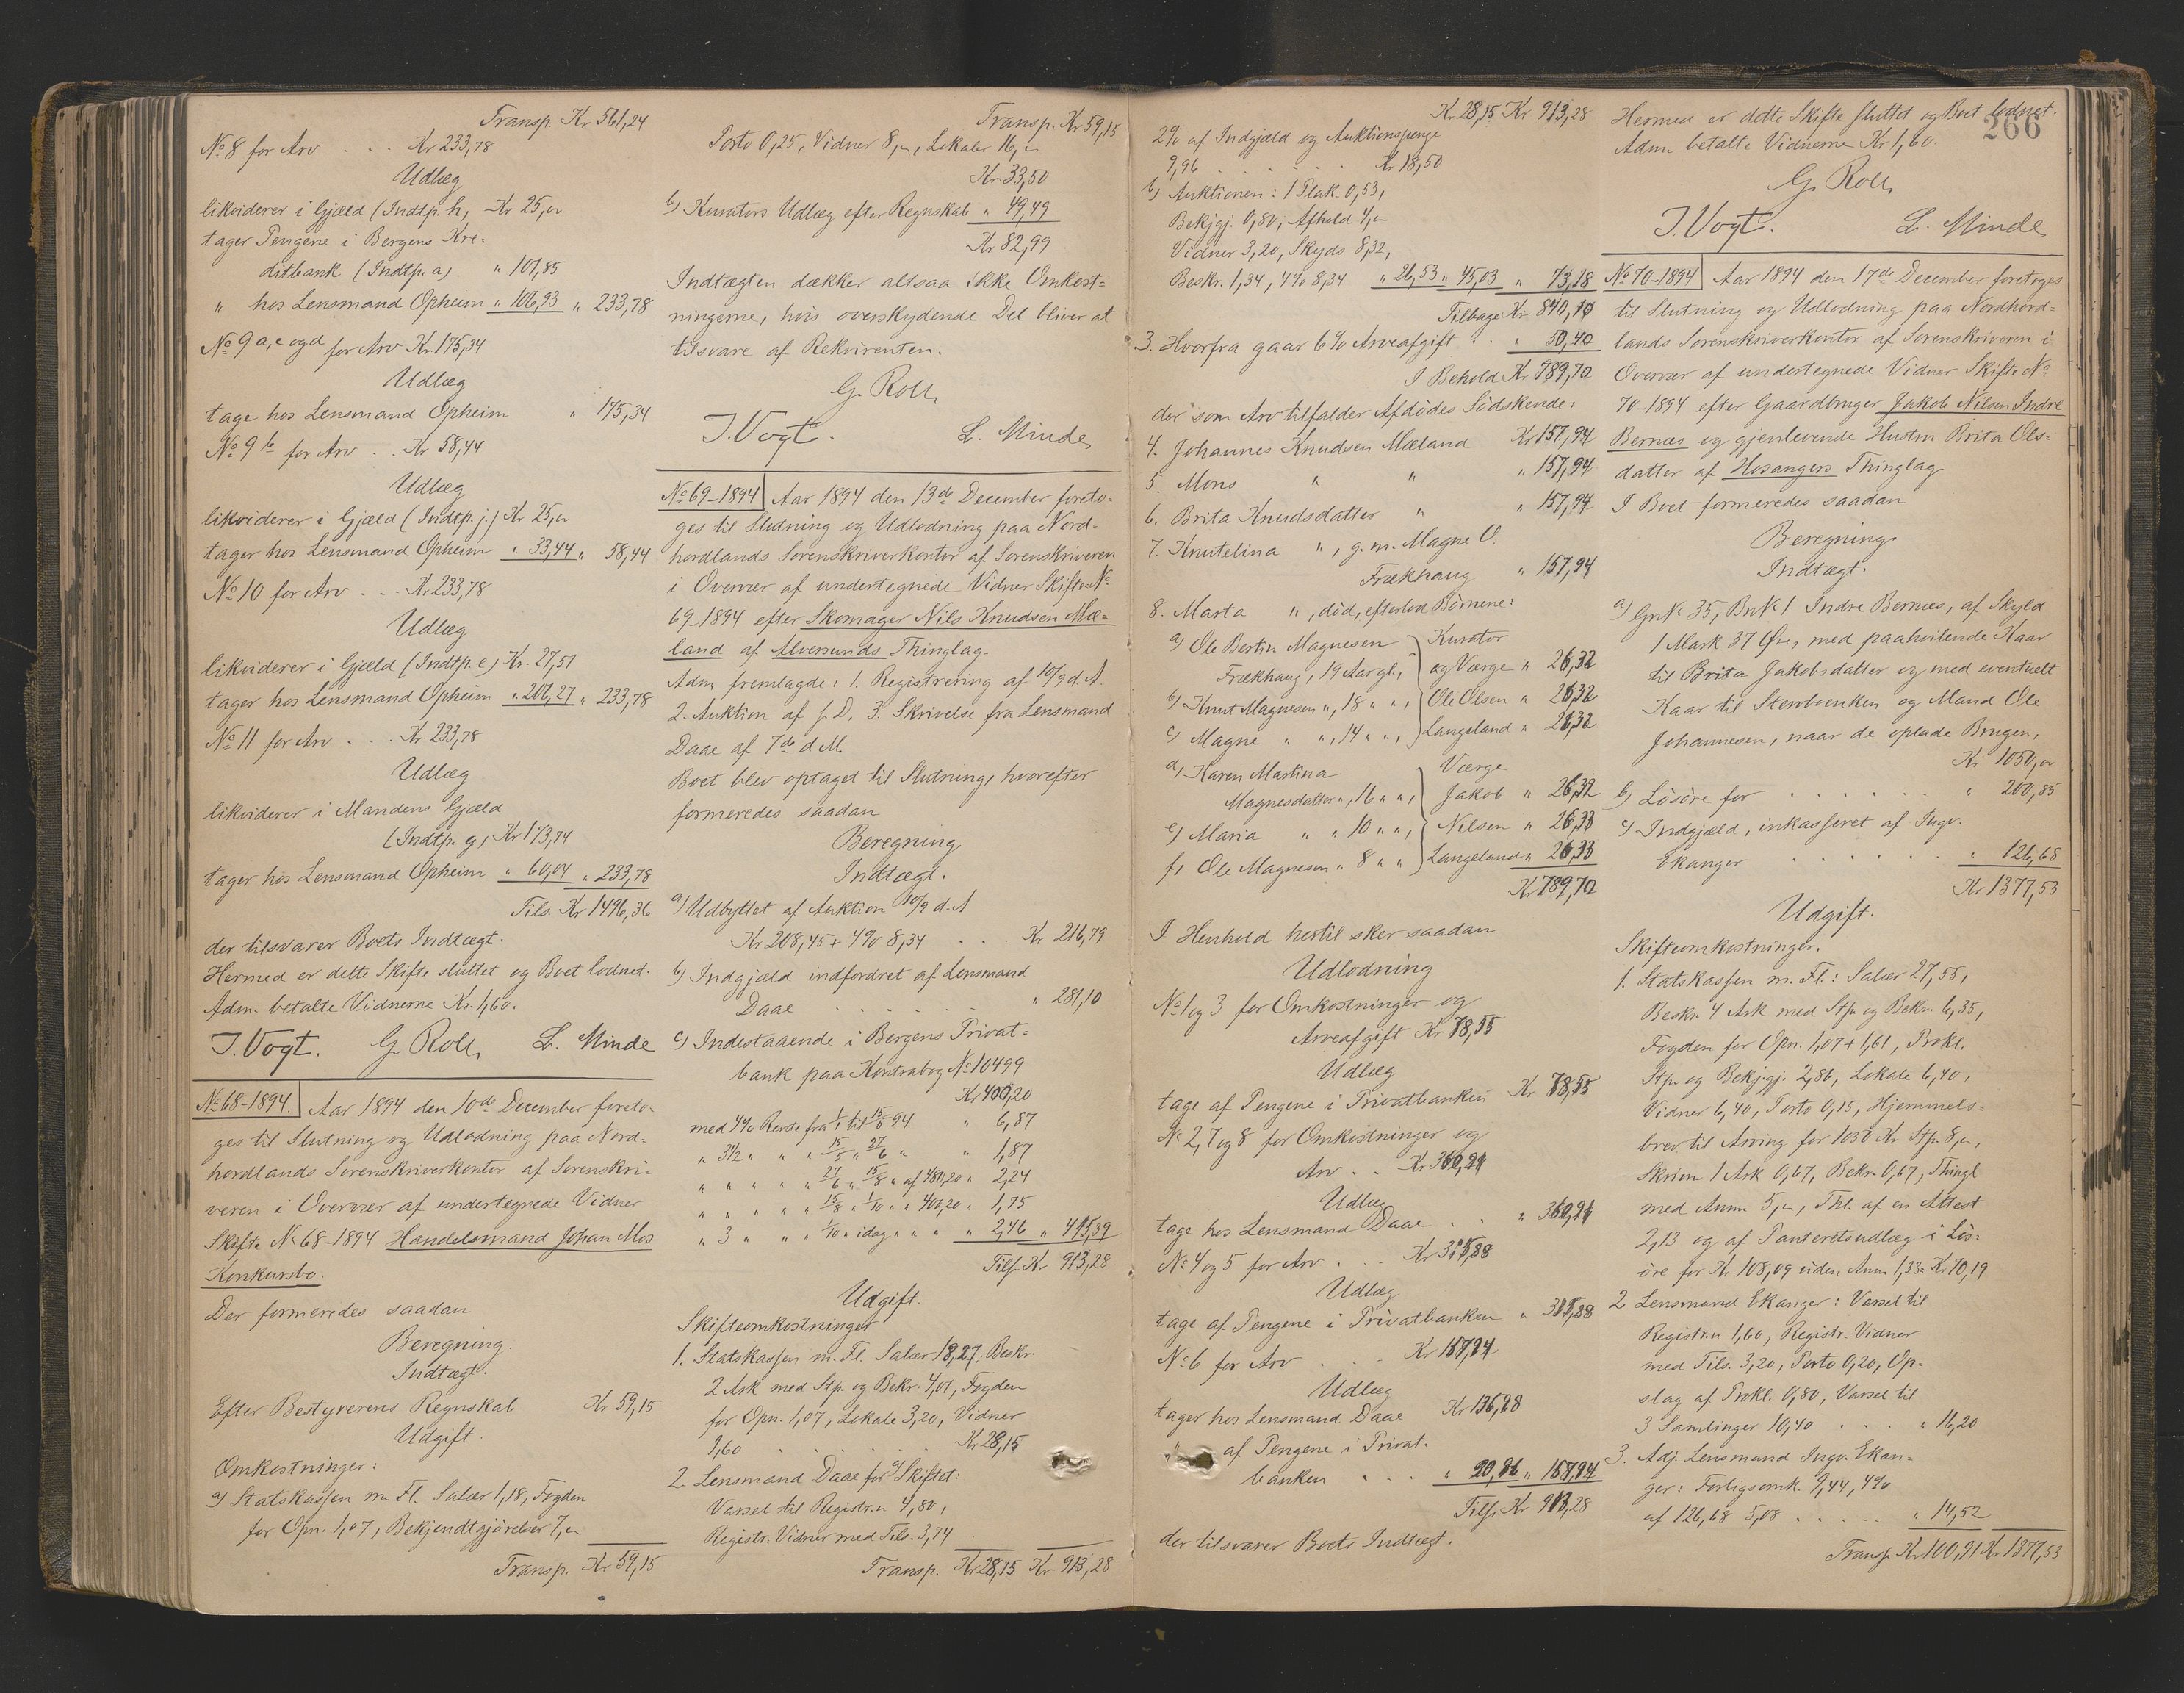 Transp. Kr 561,24
No 8 for Arv . . . Kr 233,78
Udlæg
likviderer i Gjæld (Indtp. h, Kr 25,"
tager Pengene i Bergens Kre-
ditbank (Indtp. a) " 101,85
" hos Lensmand Opheim " 106,93 " 233,78
No 9 a, c og d for Arv Kr 175,34
Udlæg
tage hos Lensmand Opheim " 175,34
No 9 b for Arv . . Kr 58,44
Udlæg
likviderer i Gjæld (Indtp. j.) Kr 25,"
tager hos Lensmand Opheim " 33,44 " 58,44
No 10 for Arv . . . Kr 233,78
Udlæg
likviderer i Gjæld (Indtp. e) Kr. 27,51
tager hos Lensmand Opheim " 206,27 " 233,78
No 11 for Arv . . . Kr 233,78
Udlæg
likviderer i Mandens Gjæld
(Indtp. g, Kr 173,74
tager hos Lensmand Opheim " 60,04 " 233,78
Tils. Kr 1496,36
der tilsvarer Boets Indtægt.
Hermed er dette Skifte sluttet og Boet lodnet.
Adm. betalte Vidnerne Kr. 1,60.
J. Vogt. G. Roll, L. Minde
No 68-1894. Aar 1894 den 10de December foreto-
ges til Slutning og Udlodning paa Nord-
hordlands Sorenskriverkontor af Sorenskri-
veren i Overvær af undertegnede Vidner
Skifte No 68-1894 Handelsmand Johan Mos
Konkursbo.
Der formeredes saadan
Beregning.
Indtægt.
Efter Bestyrerens Regnskab Kr 59,15
Udgift.
Omkostninger:
a) Statskassen m. Fl. Salær 1,18, Fogden
for Opn. 1,07, Bekjendtgjørelser 7,"
Transp. Kr 59,15
Transp. Kr 59,15
Porto 0,25, Vidner 8,", Lokaler 16,"
Kr 33,50
b) Kurators Udlæg efter Regnskab " 49,49
Kr 82,99
Indtægten dækker altsaa ikke Omkost-
ningerne, hvis overskydende Del bliver at
tilsvare af Rekvirenten.
G. Roll,
J. Vogt. L. Minde,
No 69-1894 Aar 1894 den 13de December foreto-
ges til Slutning og Udlodning paa Nord-
hordlands Sorenskriverkontor af Sorenskriveren
i Overvær af undertegnede Vidner Skifte No
69-1894 efter Skomager Nils Knudsen Mæ-
land af Alversunds Thinglag.
Adm. fremlagde: 1. Registrering af 10/9 d. A.
2. Auktion af s. D. 3. Skrivelse fra Lensmand
Daae af 7de d. M.
Boet blev optaget til Slutning, hvorefter
formeredes saadan
Beregning
Indtægt.
a) Udbyttet af Auktion 10/9 d. A
Kr 208,45 + 4% 8,34 . . . Kr 216,79
b) Indgjæld indfordret af Lensmand
Daae " 281,10
c) Indestaaende i Bergens Privat-
bank paa Kontrabog No 10499
Kr 400,20
med 4% Rente fra 1/1 til 15/5 94 " 6,87
" 3½ " " " 15/5 " 27/6 " " 1,87
" " " " " 27/6 " 15/8 " af 480,20 " 2,24
" " " " " 15/8 " 1/10 " " 400,20 " 1,75
" 3 " " " 1/10 " idag " " " " 2,46 " 415,39
Tils. Kr 913,28
Udgift.
Skifteomkostninger
1. Statskassen m. Fl. Salær 18,27, Beskr.
2 Ark med Stp. og Bekr. 4,01, Fogden
for Opn. 1,07, Lokale 3,20, Vidner
1,60 . . . . . . Kr 28,15
2. Lensmand Daae for a) Skiftet:
Varsel til Registr.n 4,80,
Registr. Vidner med Tils. 3,74
Transp. Kr 28,15 Kr 913,28
Kr 28,15 Kr 913,28
2% af Indgjæld og Auktionspenge
9,96 . . . . . Kr 18,50
b) Auktionen: 1 Plak. 0,53,
Bekjgj. 0,80, Afhold 4,"
Vidner 3,20, Skyds 8,32,
Beskr. 1,34, 4% 8,34 " 26,53 " 45,03 " 73,18
Tilbage Kr 840,10
3. Hvorfra gaar 6% Arveafgift " . " 50,40
I Behold Kr 789,70
der som Arv tilfalder Afdødes Södskende:
4. Johannes Knudsen Mæland Kr 157,94
5. Mons " " " 157,94
6. Brita Knudsdatter " " 157,94
7. Knutelina ", g. m. Magne O.
Frækhaug " 157,94
8. Marta ", död, efterlod Börnene:
a) Ole Bertin Magnesen Kurator
Frækhaug, 19 Aar gl., og Værge " 26,32
b) Knut Magnesen ", 18 " ", Ole Olsen " 26,32
c) Magne " ", 14 " ", Langeland " 26,32
d) Karen Martina Værge
Magnesdatter ", 16 " ", Jakob " 26,32
e) Maria " " 10 " ", Nilsen " 26,33
f) Ole Magnesen " 8 " " Langeland " 26,33
Kr 789,70
I Henhold hertil sker saadan
Udlodning
No 1 og 3 for Omkostninger og
Arveafgift Kr 78,55
Udlæg
tage af Pengene i Privatbanken Kr 78,55
No 2, 7 og 8 for Omkostninger og
Arv . . Kr 360,91
Udlæg
tage hos Lensmand Daae . . " 360,91
No 4 og 5 for Arv . . . Kr 315,88
Udlæg
tage af Pengene i Privatbanken " 315,88
No 6 for Arv . . . Kr 157,94
Udlæg
tager hos Lensmand Daae Kr 136,98
" af Pengene i Privat-
banken . . . " 20,96 " 157,94
Tils. Kr 913,28
der tilsvarer Boets Indtægt.
266
Hermed er dette Skifte sluttet og Boet lodnet.
Adm. betalte Vidnerne Kr 1,60.
G. Roll,
J. Vogt. L. Minde,
No 70-1894 Aar 1894 den 17de December foretoges
til Slutning og Udlodning paa Nordhord-
lands Sorenskriverkontor af Sorenskriveren i
Overvær af undertegnede Vidner Skifte No
70-1894 efter Gaardbruger Jakob Nilsen Indre
Bernes og gjenlevende Hustru Brita Ols-
datter af Hosangers Thinglag
I Boet formeredes saadan
Beregning
Indtægt.
a) Gn No 35, Bn No 1 Indre Bernes, af Skyld
1 Mark 37 Øre, med paahvilende Kaar
til Brita Jakobsdatter og med eventuelt
Kaar til Stervboenken og Mand Ole
Johannesen, naar de oplade Brugen,
Kr 1050,"
b) Lösöre for . . . . . " 200,85
c) Indgjæld, inkasseret af Ingv.
Ekanger . . . . . " 126,68
Kr 1377,53
Udgift.
Skifteomkostninger.
1. Statskassen m. Fl.: Salær 27,55,
Beskr. 4 Ark med Stp. og Bekr. 6,35,
Fogden for Opn. 1,07 + 1,61, Prokl.
Stp. og Bekjgj. 2,86, Lokale 6,40,
Vidner 6,40, Porto 0,15, Hjemmels-
brev til Arving for 1050 Kr Stp. 8,",
Skriven 1 Ark 0,67, Bekr. 0,67, Thingl.
med Anm. 5,", Thl. af en Attest
2,13 og af Panteretsudlæg i Lös-
öre for Kr 108,09 uden Anm 1,33 = Kr 70,19
2. Lensmand Ekanger: Varsel til
Registr.n 1,60, Registr. Vidner
med Tils. 3,20, Porto 0,20, Op-
slag af Prokl. 0,80, Varsel til
3 Samlinger 10,40 . . . " 16,20
3. Adj. Lensmand Ingv. Ekan-
ger: Forligsomk. 9,44, 4%
af 126,68 5,08 . . . . . " 14,52
Transp. Kr 100,91 Kr 1377,53